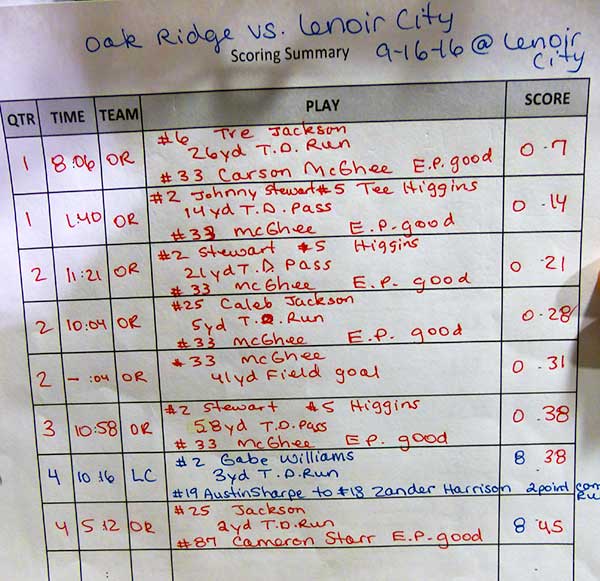 Oak Ridge vs. Lenoir City
Scoring Summary
9-16-16 @ Lenoir
City
QTR TIME TEAM PLAY SCORE
#6 Tre Jackson
1 8:06 OR 26yd T.D. Run 0 - 7
#33 Carson McGhee E.P. good
#2 Johnny Stewart #5 Tee Higgins
1 1:40 OR 14yd T.D. Pass 0 - 14
#33 McGhee E.P. good
#2 Stewart #5 Higgins
2 11:21 OR 21yd T.D. Pass 0 - 21
#33 McGhee E.P. good
#25 Caleb Jackson
2 10:04 OR 5yd T.D. Run 0 - 28
#33 McGhee E.P. good
#33 McGhee
2 - :04 OR 41yd Field goal 0 - 31
#2 Stewart #5 Higgins
3 10:58 OR 58yd T.D. Pass 0 - 38
#33 McGhee E.P. good
#2 Gabe Williams
4 10:16 LC 3yd T.D. Run 8 38
#19 Austin Sharpe to #18 Zander Harrison 2point
#25 Jackson
4 5:12 OR 2yd T.D. Run 8 - 45
#87 Cameron Starr E.P. good